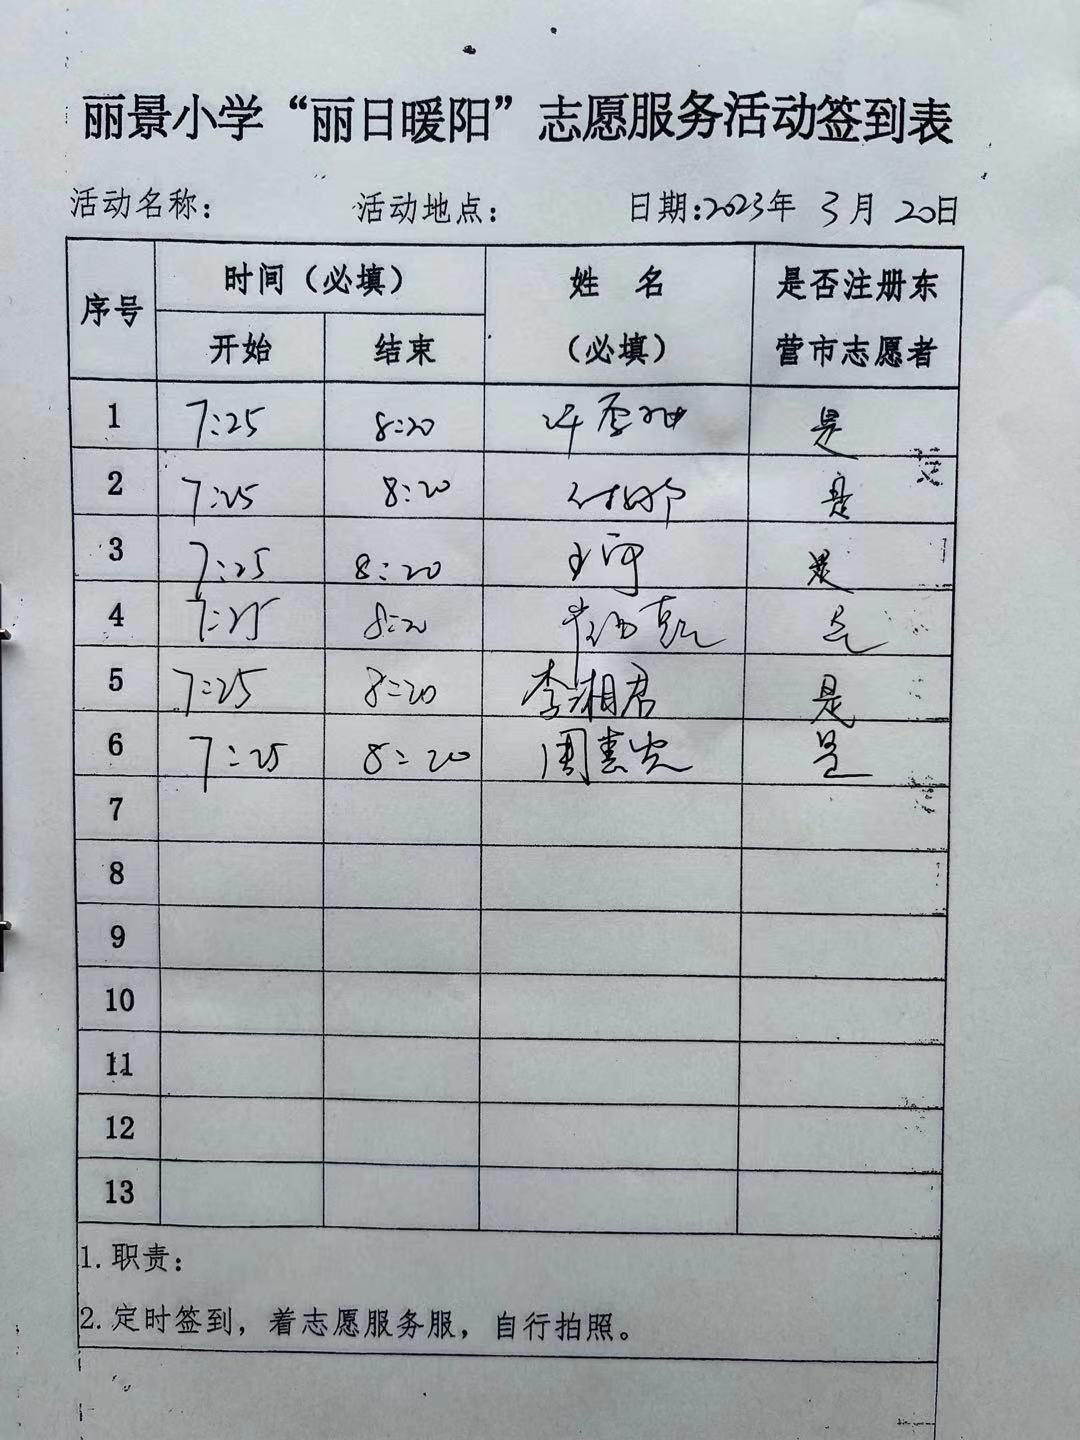 丽景小学“丽日暖阳”志愿服务活动签到表
活动名称： 活动地点： 日期:2023年 3月 20日
序号 时间（必填） 姓 名（必填） 是否注册东营市志愿者
开始 结束
1 7:25 8:20 是
2 7:25 8:20 付娜 是
3 7:25 8:20 是
4 7:25 8:20 是
5 7:25 8:20 李湘君 是
6 7:25 8:20 是
7
8
9
10
11
12
13
1.职责：
2.定时签到，着志愿服务服，自行拍照。